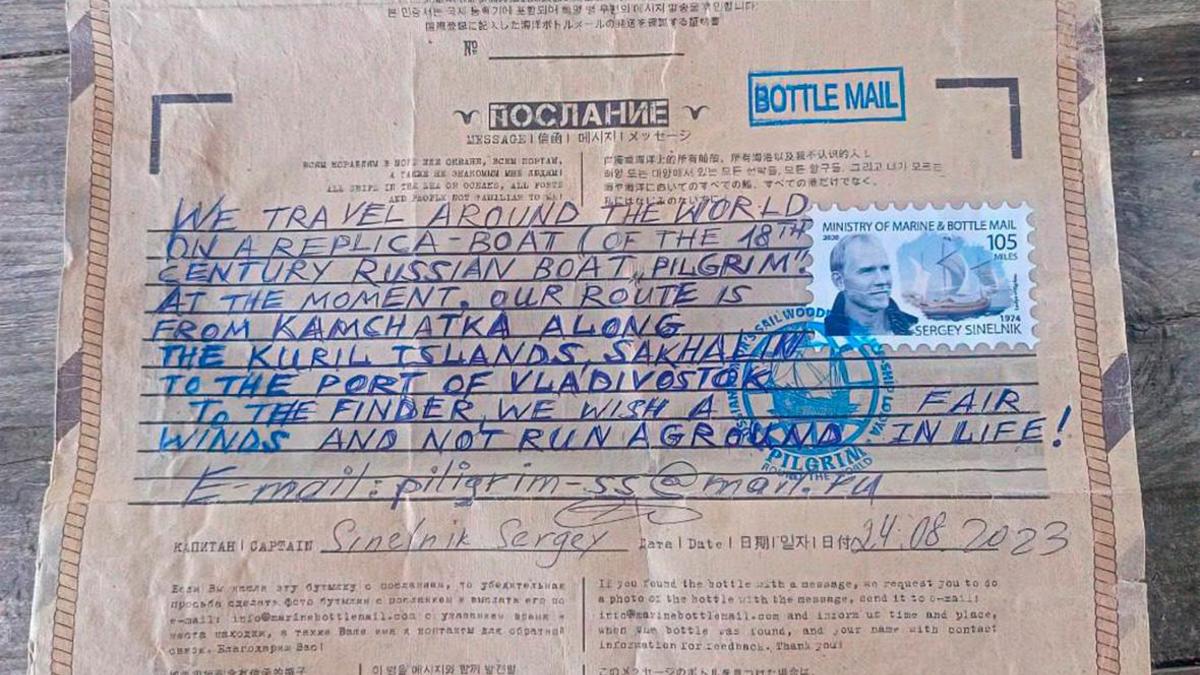 본 인증서는 국제 등록기에 포함되어 해양 병 우편의 메시지 발송을 확인합니다.
国際登録に記入した海洋ボトルメールの発送を確認する証明書
№
BOTTLE MAIL
ПОСЛАНИЕ
MESSAGE | 信函 | 메시지 | メッセージ
ВСЕМ КОРАБЛЯМ В МОРЕ ИЛИ ОКЕАНЕ, ВСЕМ ПОРТАМ,
А ТАКЖЕ НЕ ЗНАКОМЫМ МНЕ ЛЮДЯМ!
ALL SHIPS IN THE SEA OR OCEANS, ALL PORTS
AND PEOPLE NOT FAMILIAR TO ME!
海或海洋上的所有船舶, 所有海港以及我不认识的人!
바다 또는 대양에서 있는 모든 선박들, 모든 항구들, 그리고 내가 모르는
海や海洋においてのすべての船、すべての港だけでなく、
WE TRAVEL AROUND THE WORLD
ON A REPLICA-BOAT (OF THE 18TH
CENTURY RUSSIAN BOAT „PILGRIM"
AT THE MOMENT, OUR ROUTE IS
FROM KAMCHATKA ALONG
THE KURIL ISLANDS, SAKHALIN
TO THE PORT OF VLADIVOSTOK
TO THE FINDER, WE WISH A FAIR
WINDS AND NOT RUN AGROUND IN LIFE!
E-mail: piligrim-ss@mail.ru
MINISTRY OF MARINE & BOTTLE MAIL
2020
105
MILES
1974
SERGEY SINELNIK
PILGRIM
ROUND THE WORLD
КАПИТАН | CAPTAIN Sinelnik Sergey Дата | Date | 日期 | 일자 | 日付 24.08 2023
Если Вы нашли эту бутылку с посланием, то убедительная
просьба сделать фото бутылки с посланием и выслать его по
e-mail: info@marinebottlemail.com с указанием время и
места находки, а также Ваше имя и контакты для обратной
связи. Благодарим Вас!
If you found the bottle with a message, we request you to do
a photo of the bottle with the message, send it to e-mail:
info@marinebottlemail.com and inform us time and place,
when the bottle was found, and your name with contact
information for feedback. Thank you!
이 병을 메시지와 함께 발견할
このメッセージのボトルを見つけた場合は